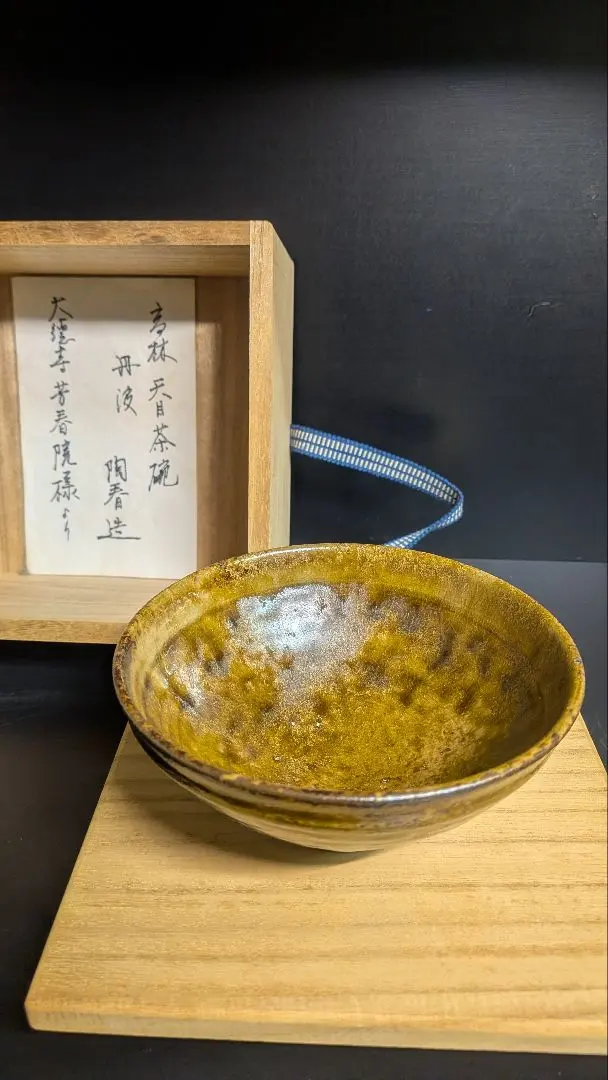 高林 天目茶碗
丹波 陶春造
大德寺 芳春院様より